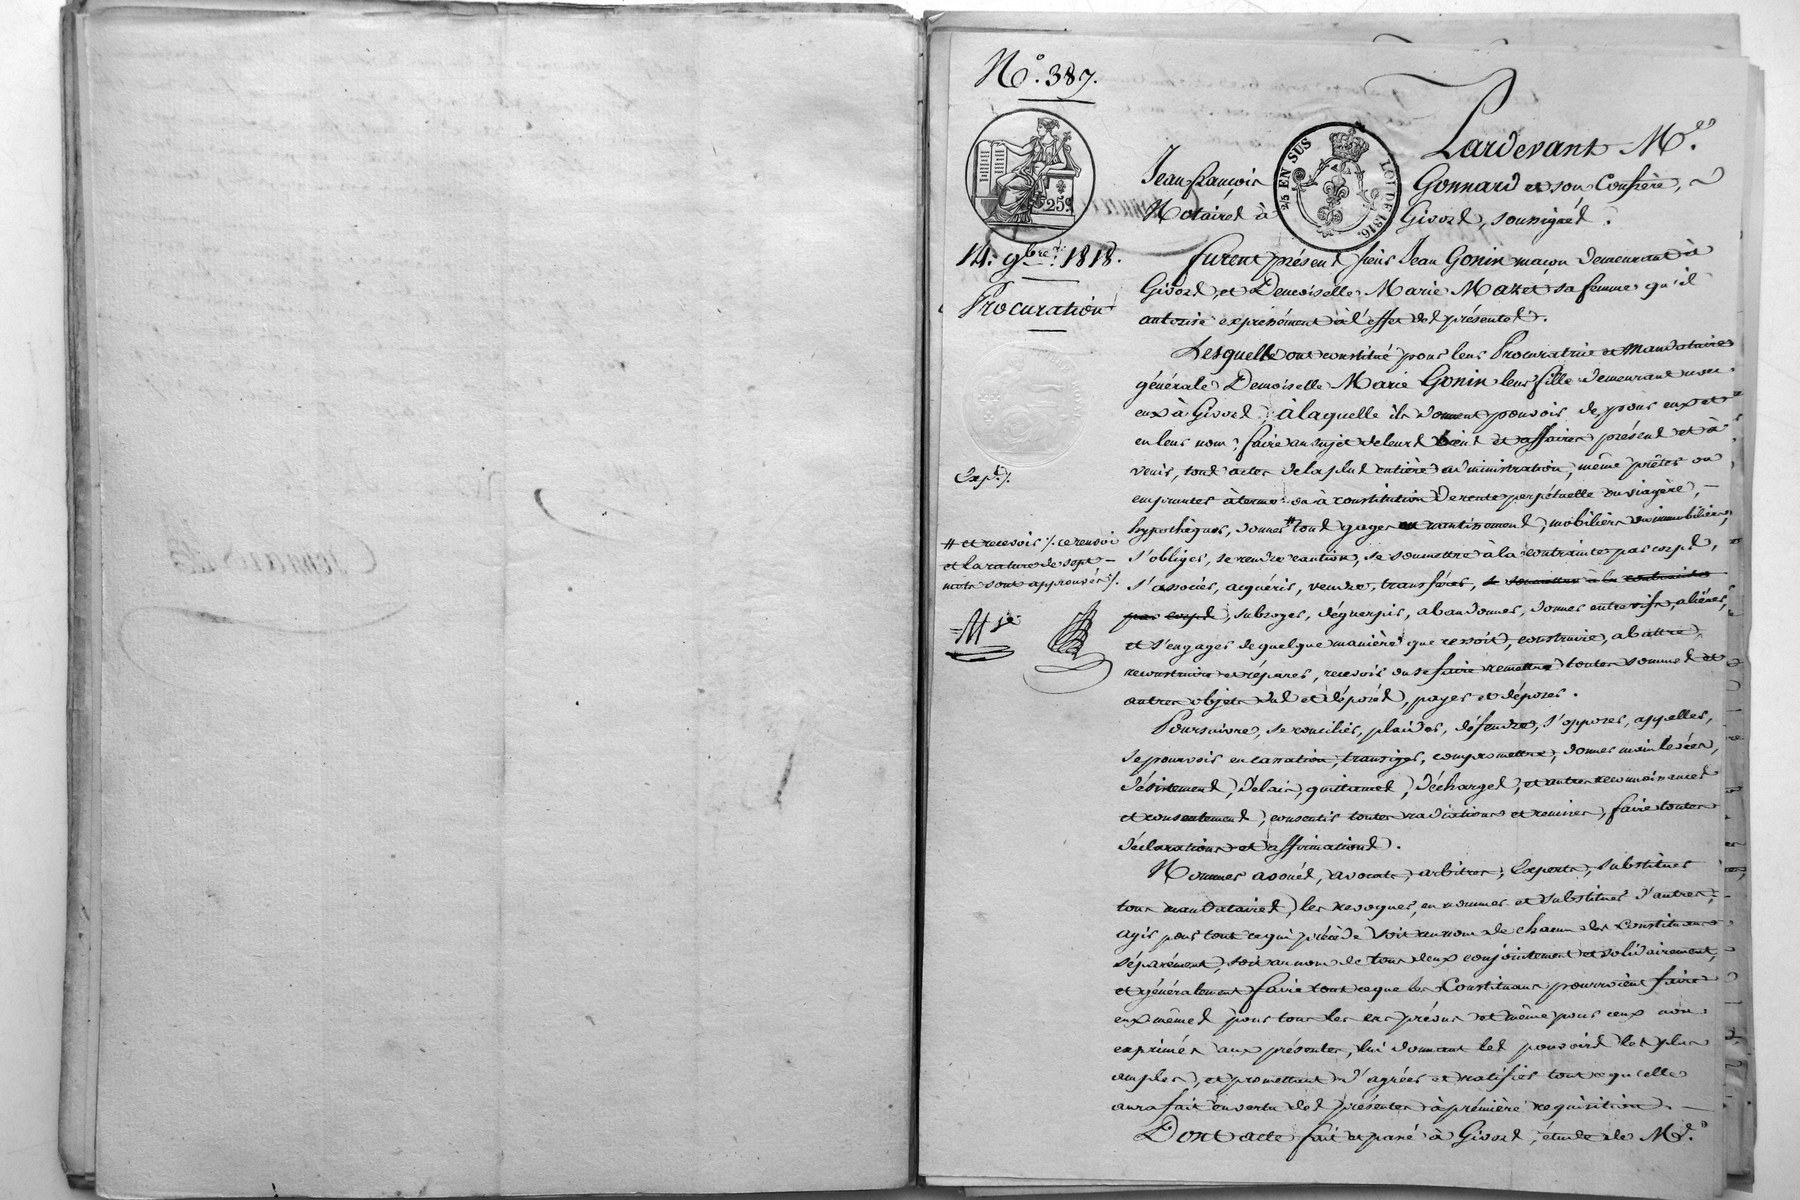 N.° 387.
25c
2/5 EN SUS
LOI DE 1816.
14. 9bre. 1818.
Procuration
Expd. /.
# et recevoir /. ce renvoi
et la rature de sept
mots sont approuvés /.
Pardevant Mes.
Jean françois Gonnard et son Confrère,
Notaires à Givors, soussignés.
furent présens sieur Jean Gonin maçon demeurant à
Givors, et Demoiselle Marie Mazet sa femme qu'il
autorise expressément à l'effet des présentes.
Lesquels ont constitué pour leur Procuratrice et Mandataire
générale Demoiselle Marie Gonin leur fille demeurant avec
eux à Givors, à laquelle ils donnent pouvoir de, pour eux et
en leur nom, faire au sujet de leurs biens et affaires présens et à
venir, tous actes de la plus entière administration, même prêter ou
emprunter à terme ou à constitution de rente perpétuelle ou viagère,
hypothéquer, donner # tous gages ou nantissemens, mobiliers ou immobiliers,
s'obliger, se rendre caution, se soumettre à la contrainte par corps,
s'associer, acquérir, vendre, transférer, se soumettre à la contrainte
par corps, subroger, déguerpir, abandonner, donner entre vifs, aliéner,
et s'engager de quelque manière que ce soit, construire, abattre,
reconstruire et réparer, recevoir ou se faire remettre toutes sommes et
autres objets dus et déposés, payer et déposer.
Poursuivre, se concilier, plaider, défendre, s'opposer, appeller,
se pourvoir en cassation, transiger, compromettre, donner main levées,
désistemens, délais, quittances, décharges, et autres reconnoissances
et consentemens, consentir toutes radiations et remises, faire toutes
déclarations et affirmations.
Nommer avoués, avocats, arbitres, Experts, substituer
tous mandataires, les révoquer, en nommer et substituer d'autres,
agir pour tout ce qui précède soit au nom de chacun des Constituans
séparément, soit au nom de tous deux conjointement et solidairement,
et généralement faire tout ce que les Constituans pourroient faire
eux mêmes pour tous les cas prévus et même pour ceux non
exprimés aux présentes, lui donnant les pouvoirs les plus
amples, et promettant d'agréer et ratifier tout ce qu'elle
aura fait en vertu des présentes à première réquisition.
Dont acte fait et passé à Givors, étude de Me.